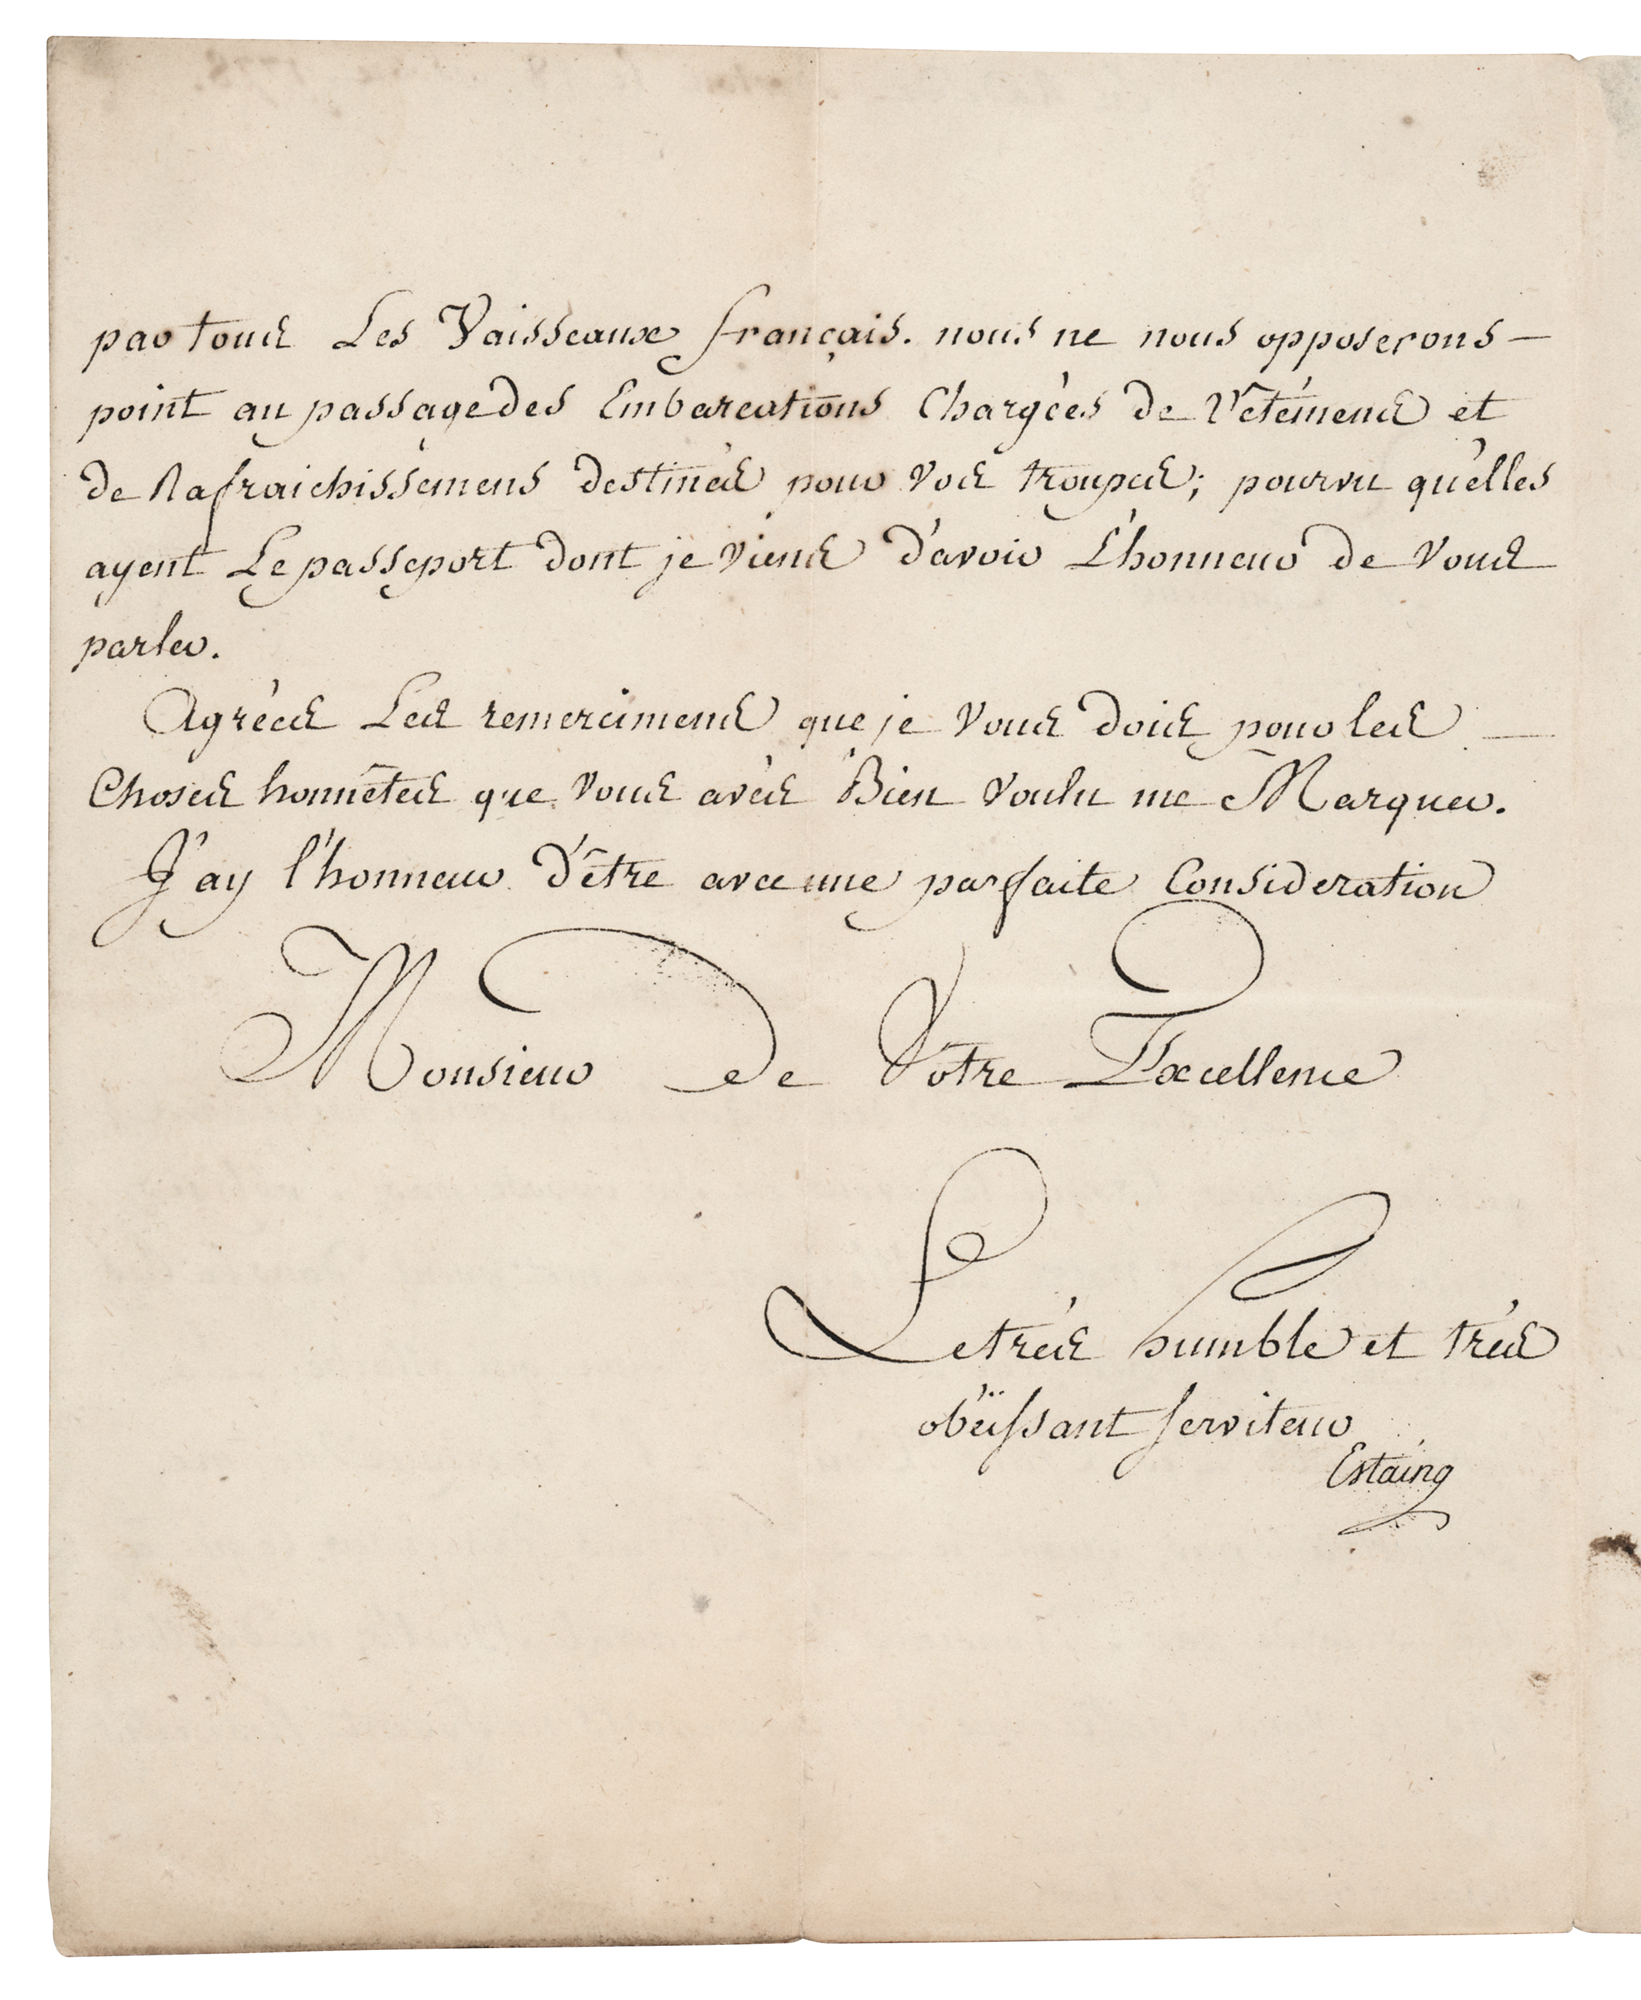 par tous Les Vaisseaux français. nous ne nous opposerons —
point au passage des Embarcations Chargées de Vêtémens et
de Rafraichissémens destinées pour Vos troupes; pourvu qu'elles
ayent Le passeport dont je viens d'avoir L'honneur de Vous
parler.
Agréés Les remercimens que je Vous dois pour les —
Choses honnêtes que Vous avés Bien Voulu me Marquer.
J'ay l'honneur d'être avec une parfaite Consideration
Monsieur De Vôtre Excellence
Le trés humble et trés
obëissant serviteur
Estaing